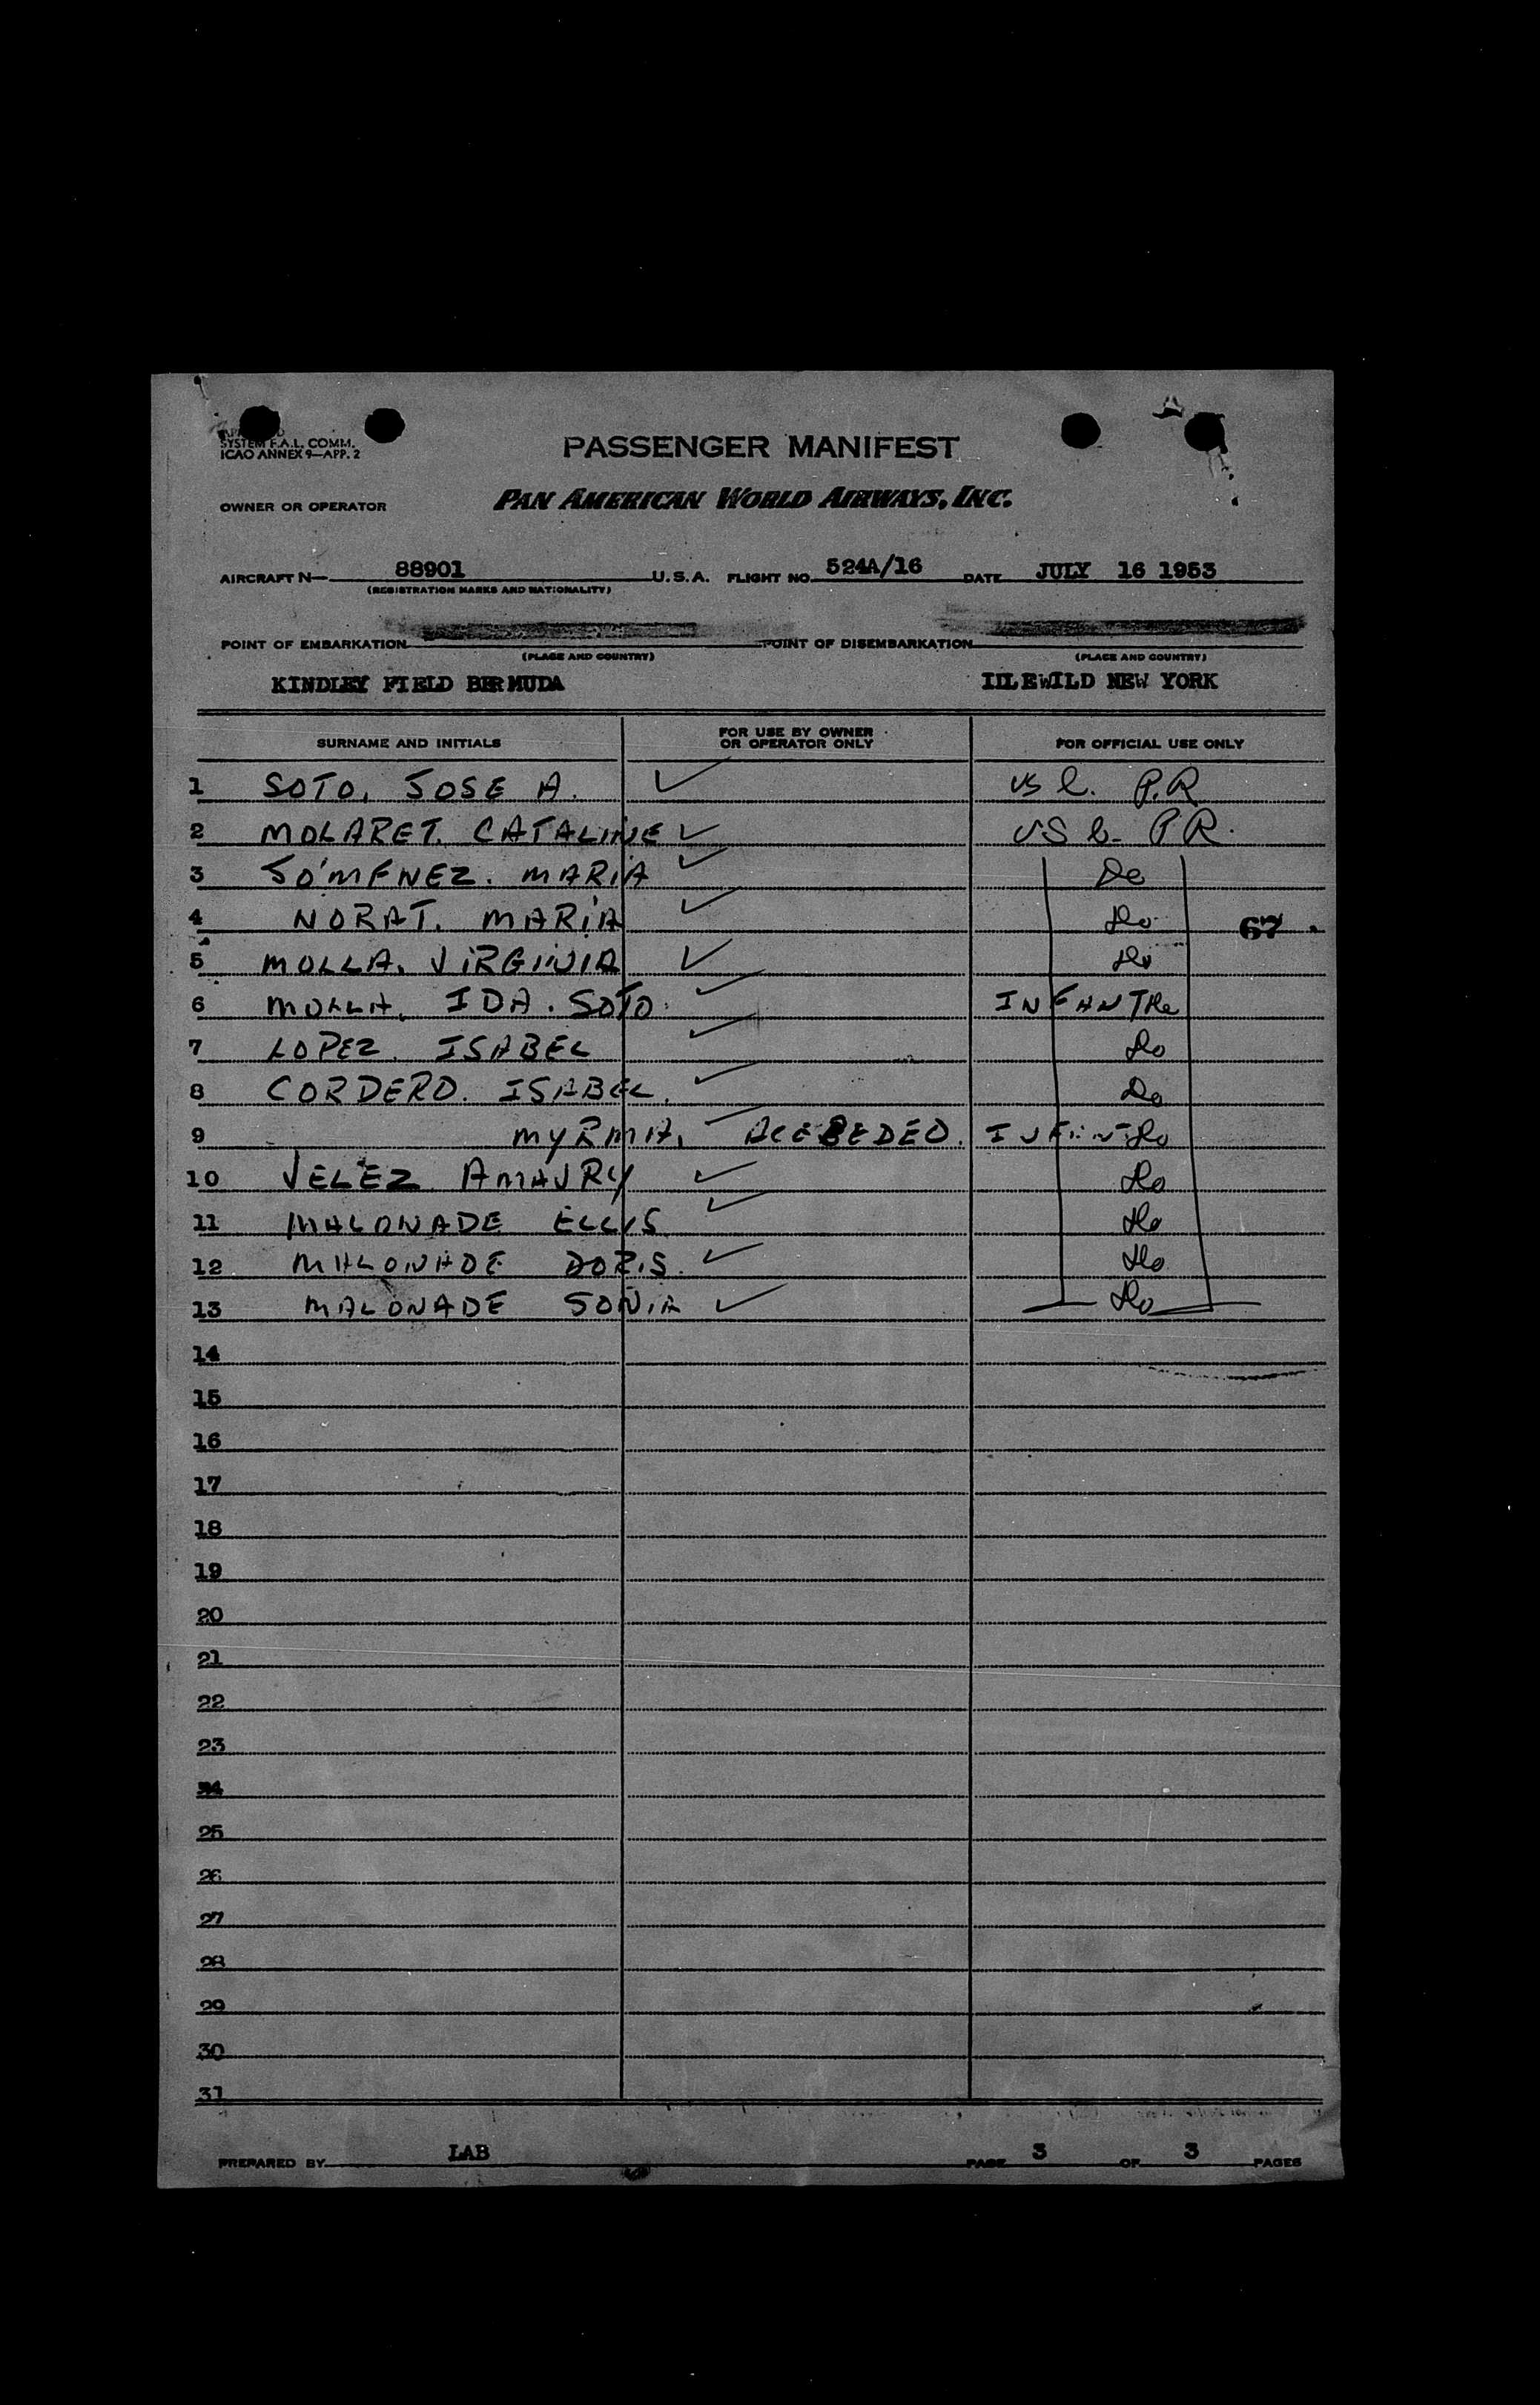 SYSTEM F.A.L. COMM.
ICAO ANNEX 9—APP. 2
PASSENGER MANIFEST
OWNER OR OPERATOR PAN AMERICAN WORLD AIRWAYS, INC.
AIRCRAFT N— 88901 U.S.A. FLIGHT NO. 524A/16 DATE JULY 16 1953
(REGISTRATION MARKS AND NATIONALITY)
POINT OF EMBARKATION POINT OF DISEMBARKATION
(PLACE AND COUNTRY) (PLACE AND COUNTRY)
KINDLEY FIELD BERMUDA IDLEWILD NEW YORK
SURNAME AND INITIALS FOR USE BY OWNER OR OPERATOR ONLY FOR OFFICIAL USE ONLY
1 SOTO, JOSE A. ✓ US C. P.R
2 MOLARET. CATALINE ✓ US C- P.R.
3 JO'MENEZ. MARIA ✓ Do
4 NORAT. MARIA ✓ Do 67
5 MOLLA. VIRGINIA ✓ Do
6 MOLLA. IDA. SOTO. ✓ INFANT Do
7 LOPEZ. ISABEL ✓ Do
8 CORDERO. ISABEL. ✓ Do
9 MYRMA. ✓ ACEBEDEO. INFANT Do
10 VELEZ AMAURY ✓ Do
11 MALONADE ELLIS ✓ Do
12 MALONADE DORIS. ✓ Do
13 MALONADE SONIA ✓ Do
14
15
16
17
18
19
20
21
22
23
24
25
26
27
28
29
30
31
PREPARED BY LAB PAGE 3 OF 3 PAGES